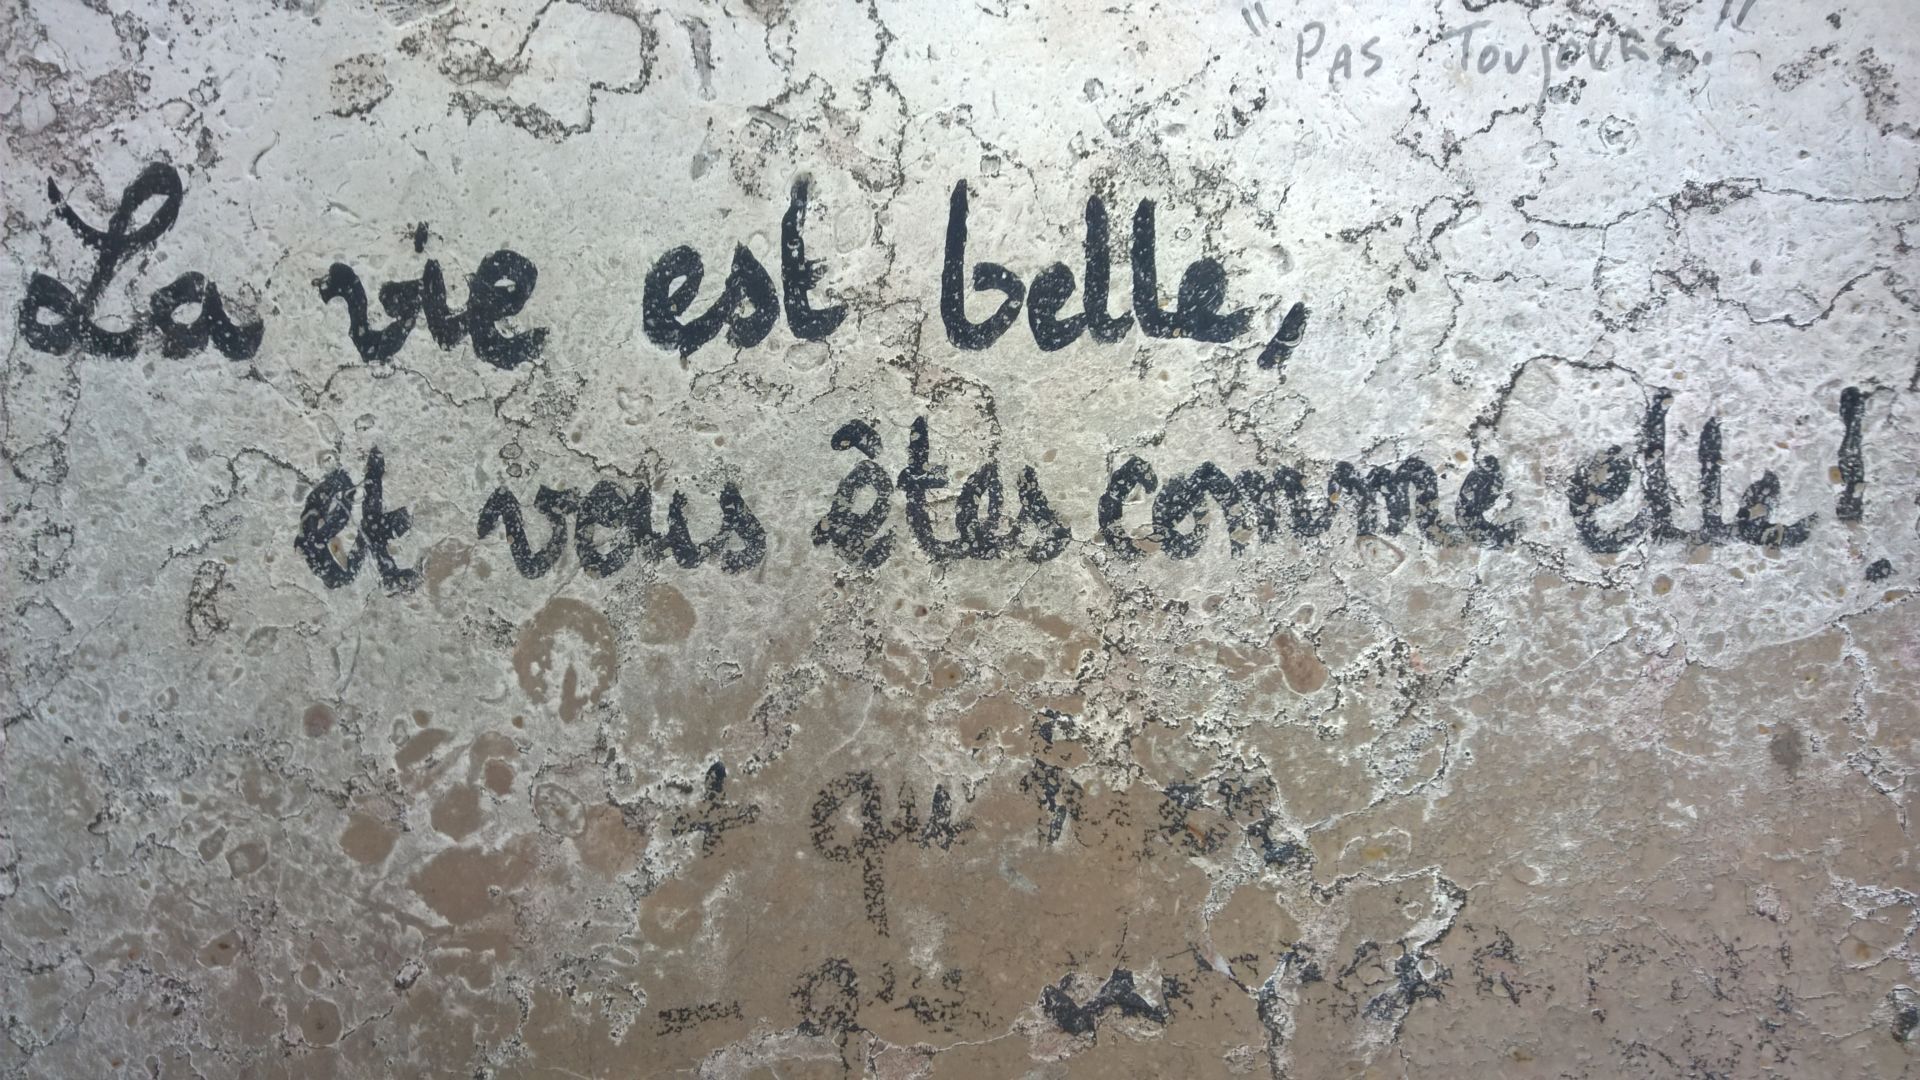 "Pas Toujours."
La vie est belle,
et vous êtes comme elle !
+ qu'hier
- que